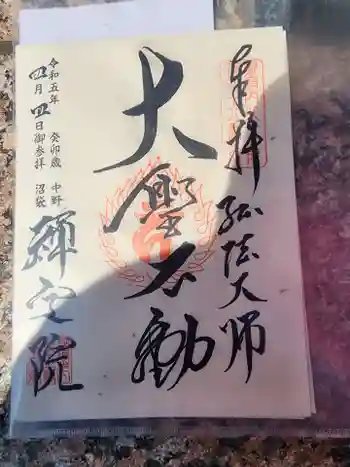 奉拝 弘法大师
大聖不動
令和五年 癸卯歳 中野
四月四日御参拝 沼袋
禅定院